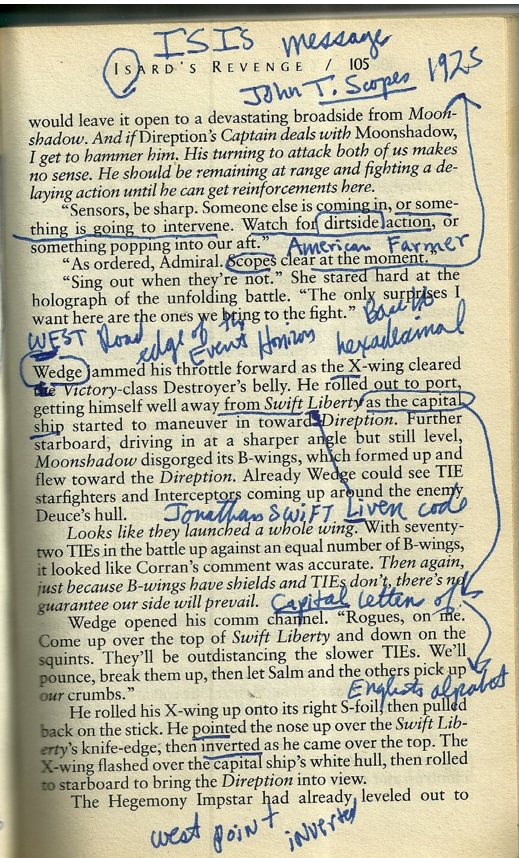 ISIS message
ISARD'S REVENGE / 105
John T. Scopes 1925
would leave it open to a devastating broadside from Moon-
shadow. And if Direption's Captain deals with Moonshadow,
I get to hammer him. His turning to attack both of us makes
no sense. He should be remaining at range and fighting a de-
laying action until he can get reinforcements here.
"Sensors, be sharp. Someone else is coming in, or some-
thing is going to intervene. Watch for dirtside action, or
something popping into our aft."
American Farmer
"As ordered, Admiral. Scopes clear at the moment."
"Sing out when they're not." She stared hard at the
holograph of the unfolding battle. "The only surprises I
want here are the ones we bring to the fight."
WEST Road edge of the Event Horizon
hexadecimal
Wedge jammed his throttle forward as the X-wing cleared
the Victory-class Destroyer's belly. He rolled out to port,
getting himself well away from Swift Liberty as the capital
ship started to maneuver in toward Direption. Further
starboard, driving in at a sharper angle but still level,
Moonshadow disgorged its B-wings, which formed up and
flew toward the Direption. Already Wedge could see TIE
starfighters and Interceptors coming up around the enemy
Deuce's hull.
Jonathan SWIFT Liver code
Looks like they launched a whole wing. With seventy-
two TIEs in the battle up against an equal number of B-wings,
it looked like Corran's comment was accurate. Then again,
just because B-wings have shields and TIEs don't, there's no
guarantee our side will prevail.
Capital letter of
Wedge opened his comm channel. "Rogues, on me.
Come up over the top of Swift Liberty and down on the
squints. They'll be outdistancing the slower TIEs. We'll
pounce, break them up, then let Salm and the others pick up
our crumbs."
English alphabet
He rolled his X-wing up onto its right S-foil, then pulled
back on the stick. He pointed the nose up over the Swift Lib-
erty's knife-edge, then inverted as he came over the top. The
X-wing flashed over the capital ship's white hull, then rolled
to starboard to bring the Direption into view.
The Hegemony Impstar had already leveled out to
west point inverted